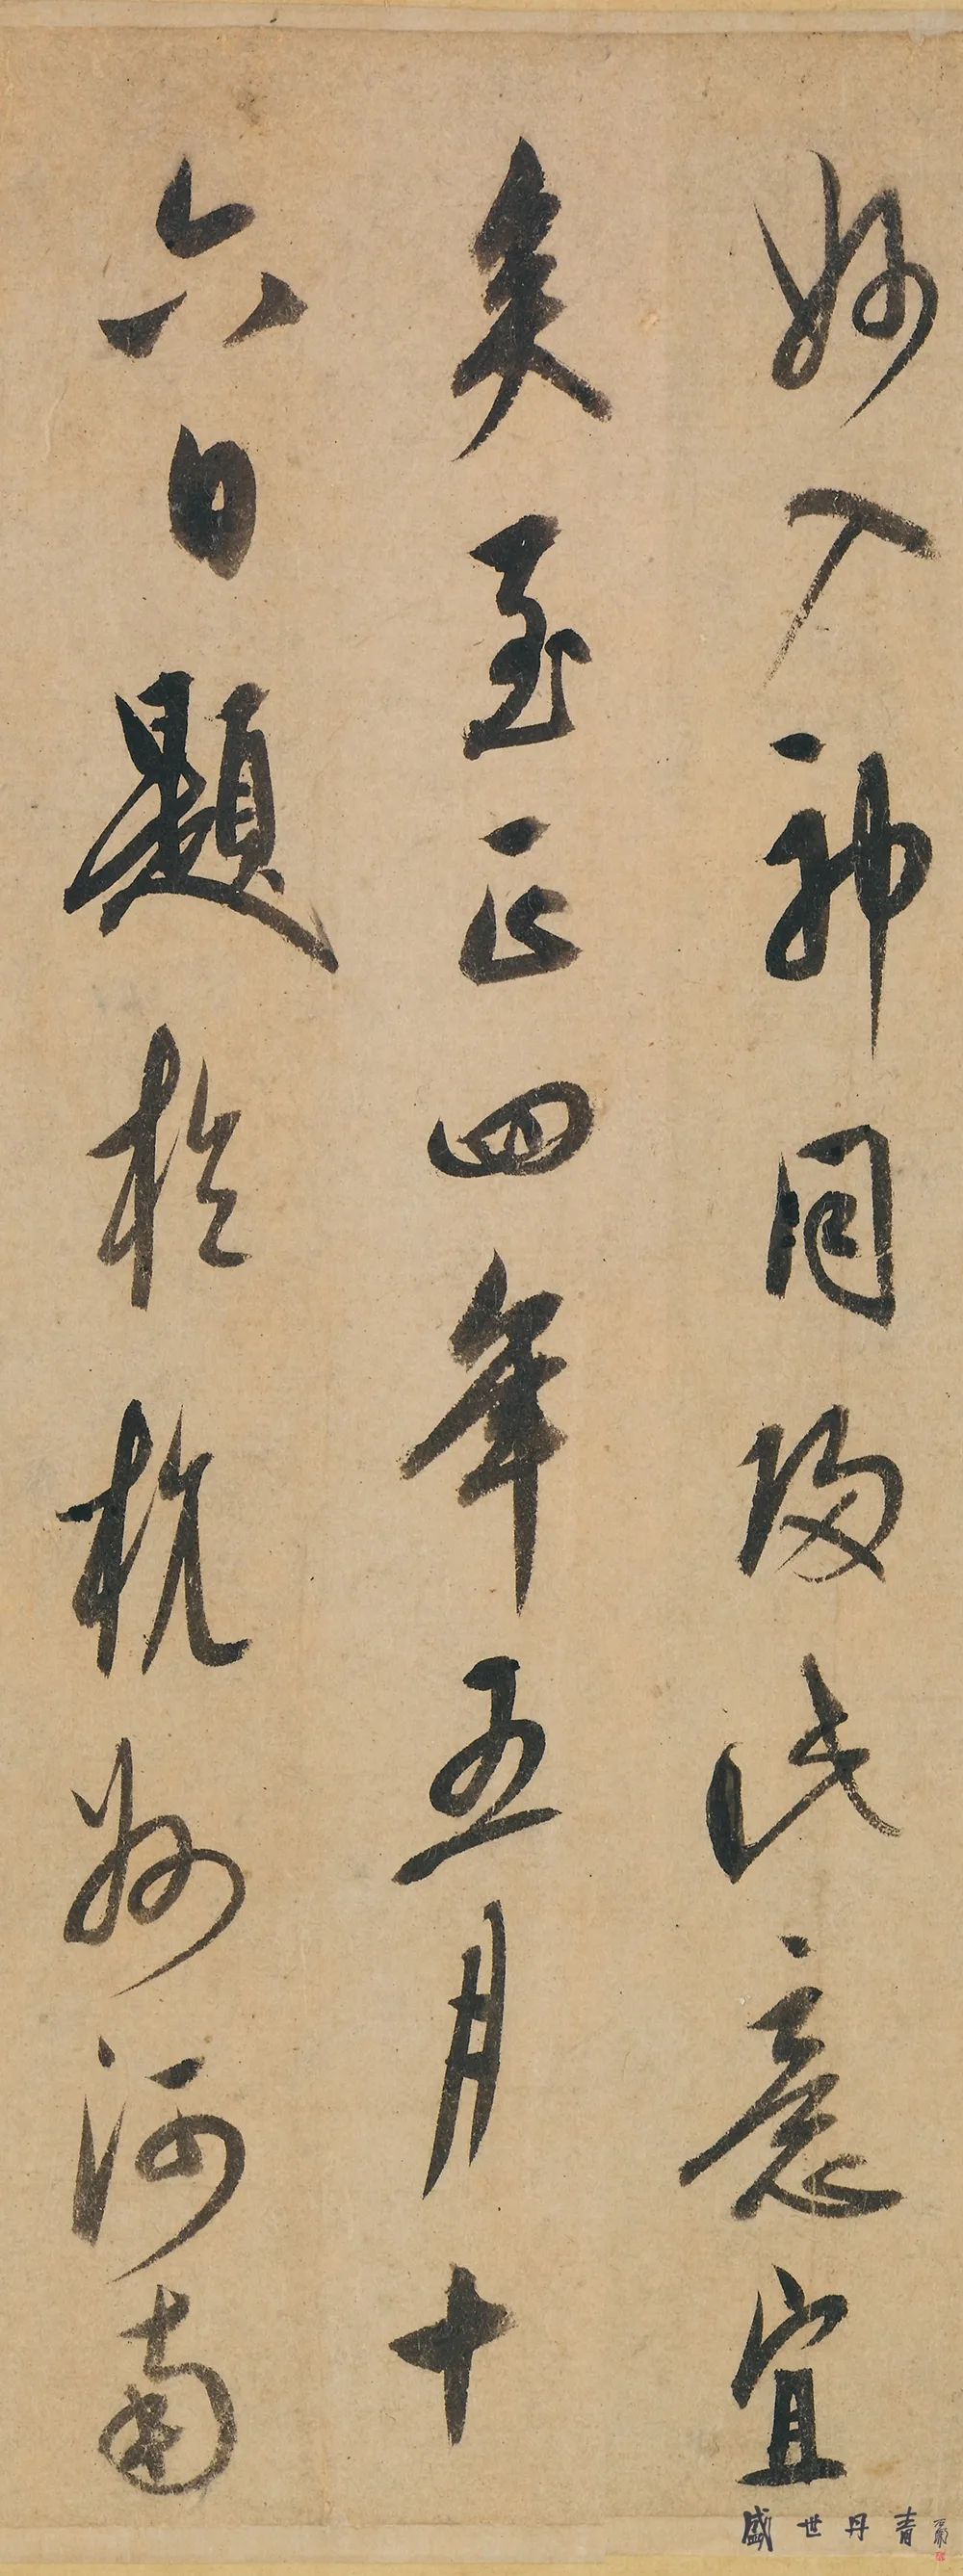 妙入神此意宜
矣至正四年五月十
六日題於杭州河南
盛世丹青